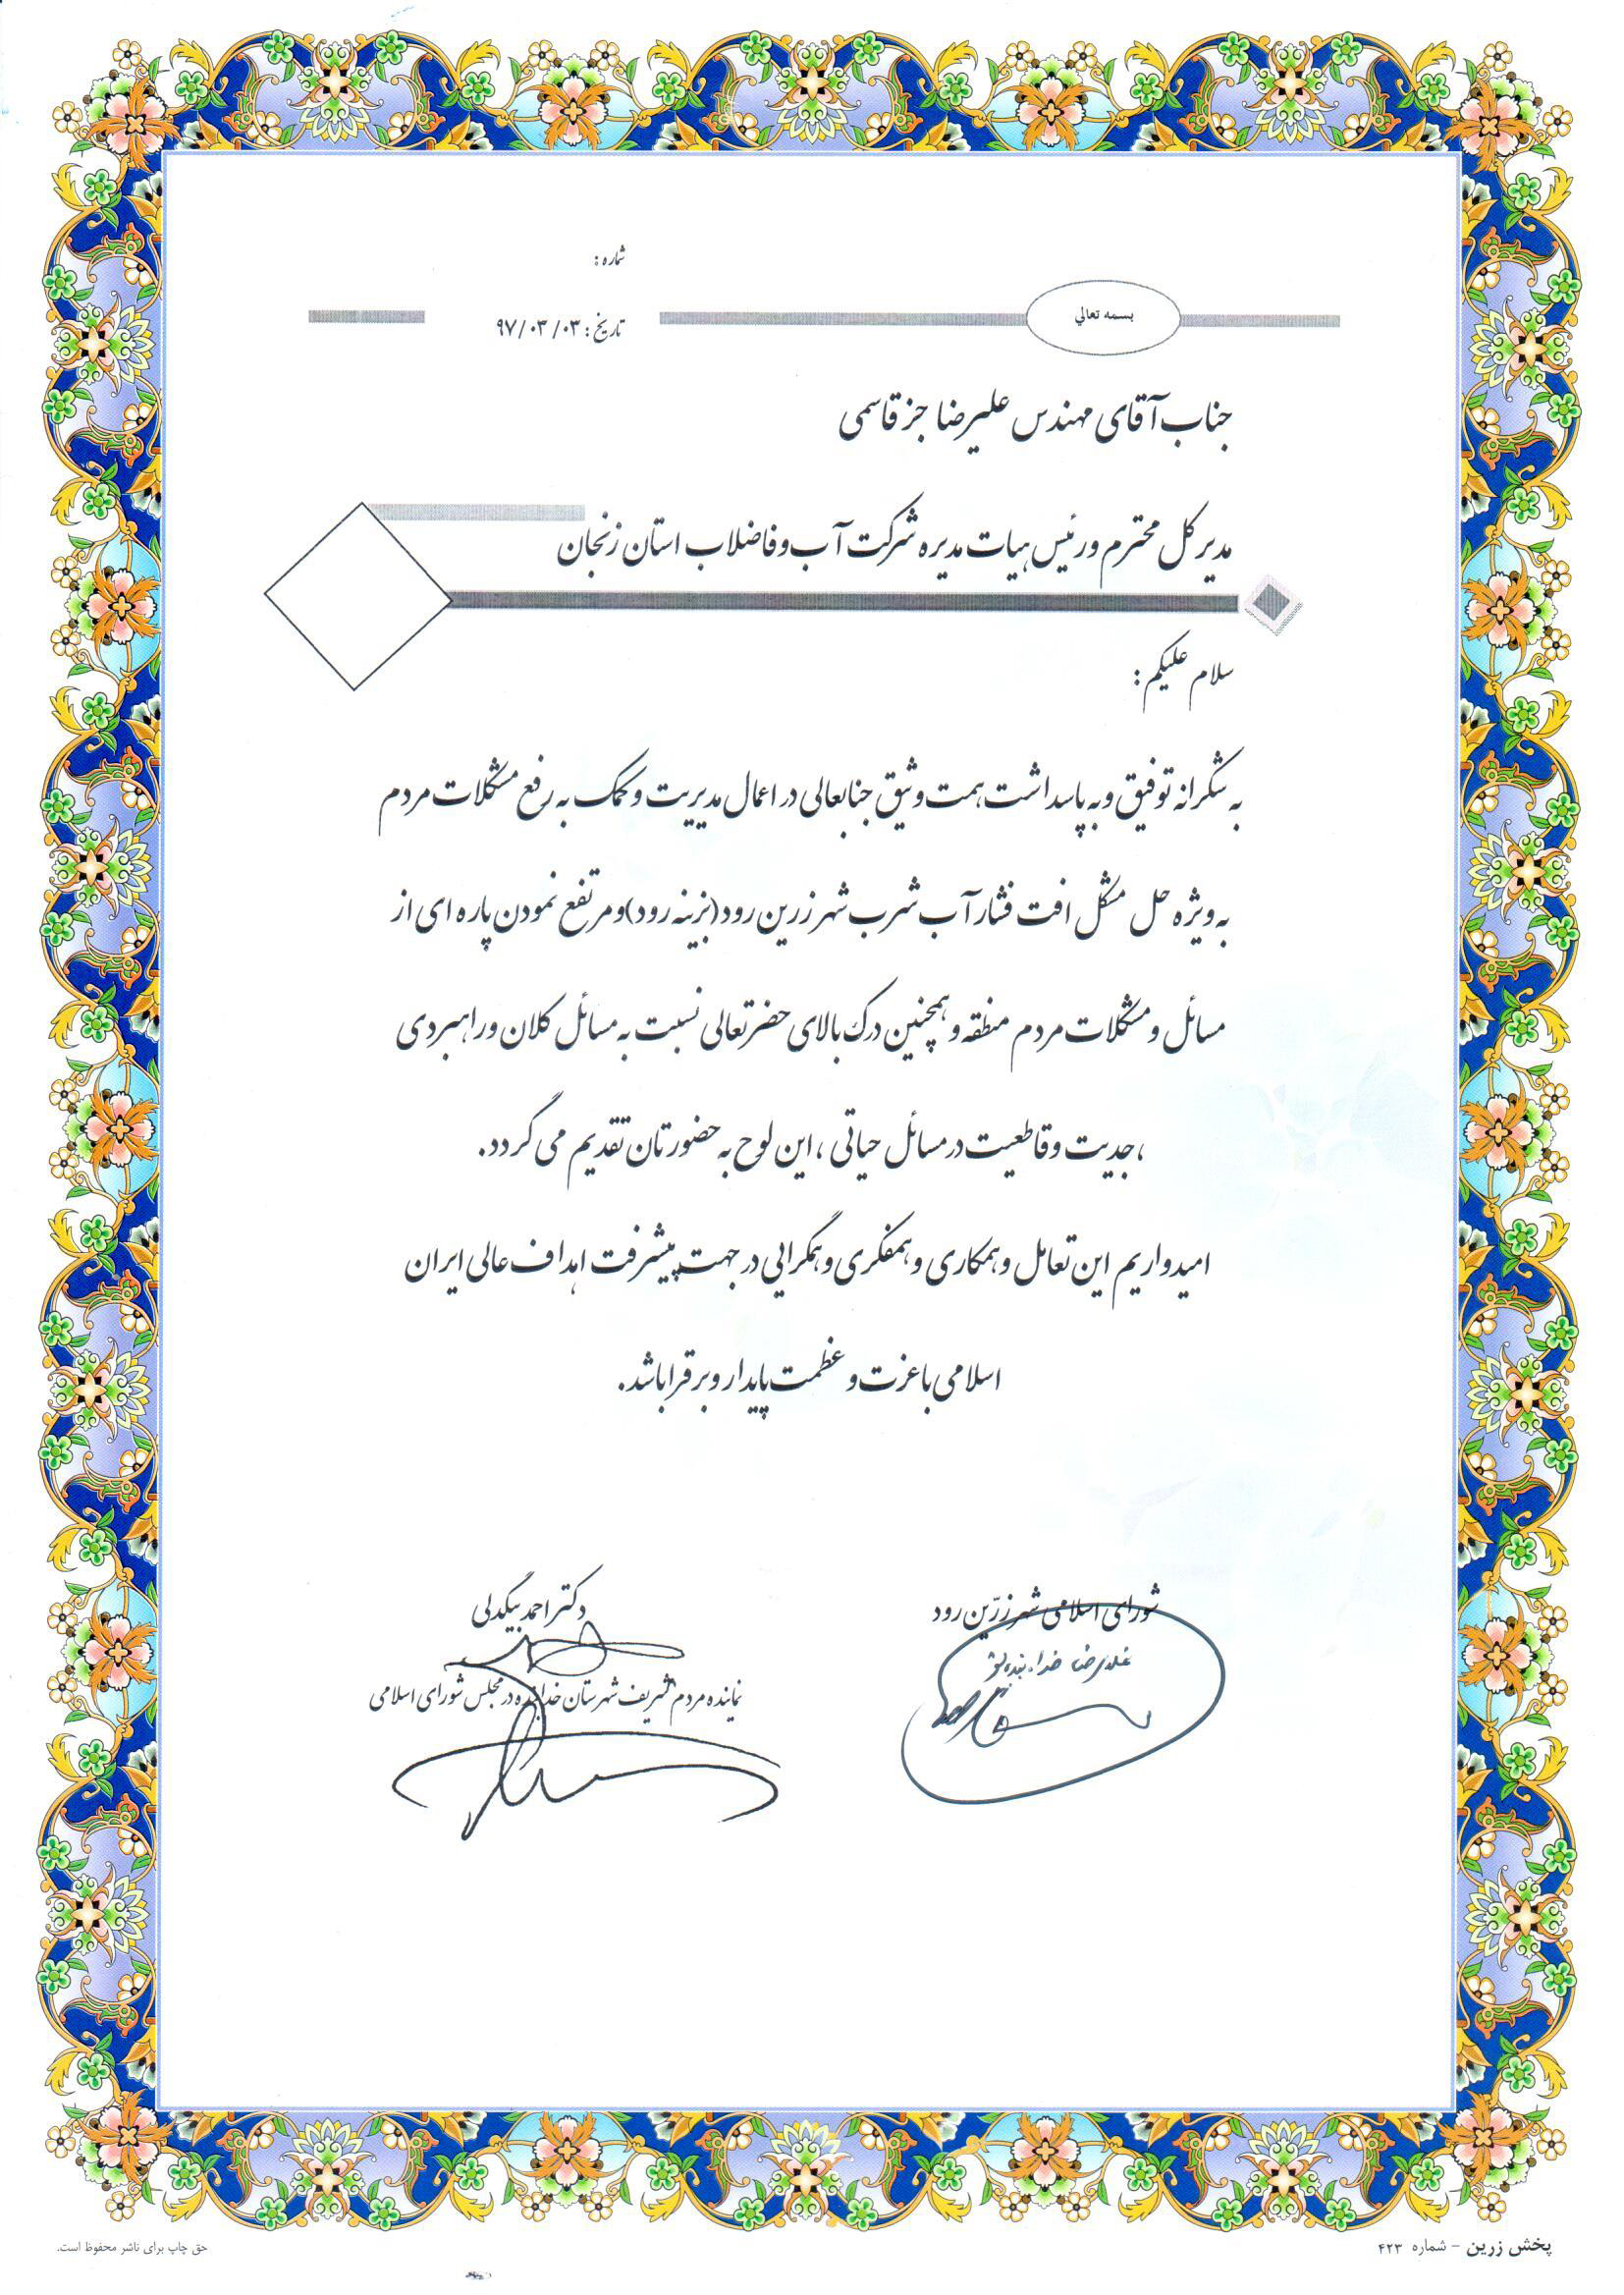 شماره :
بسمه تعالي
تاریخ : ۹۷/۰۳/۰۳
جناب آقای مهندس علیرضا جزقاسمی
مدیر کل محترم و رئیس هیات مدیره شرکت آب و فاضلاب استان زنجان
سلام علیکم :
به شکرانه توفیق و به پاسداشت همت وثیق جنابعالی در اعمال مدیریت و کمک به رفع مشکلات مردم
به ویژه حل مشکل افت فشار آب شرب شهر زرین رود (بزینه رود) و مرتفع نمودن پاره ای از
مسائل و مشکلات مردم منطقه و همچنین درک بالای حضرتعالی نسبت به مسائل کلان و راهبردی
، جدیت و قاطعیت در مسائل حیاتی ، این لوح به حضورتان تقدیم می گردد.
امیدواریم این تعامل و همکاری و همفکری و همگرایی در جهت پیشرفت اهداف عالی ایران
اسلامی با عزت و عظمت پایدار و برقرا باشد.
شورای اسلامی شهر زرّین رود
غلامرضا خدابنده لو
دکتر احمد بیگدلی
نماینده مردم شریف شهرستان خدابنده در مجلس شورای اسلامی
پخش زرین - شماره ۴۲۳
حق چاپ برای ناشر محفوظ است.